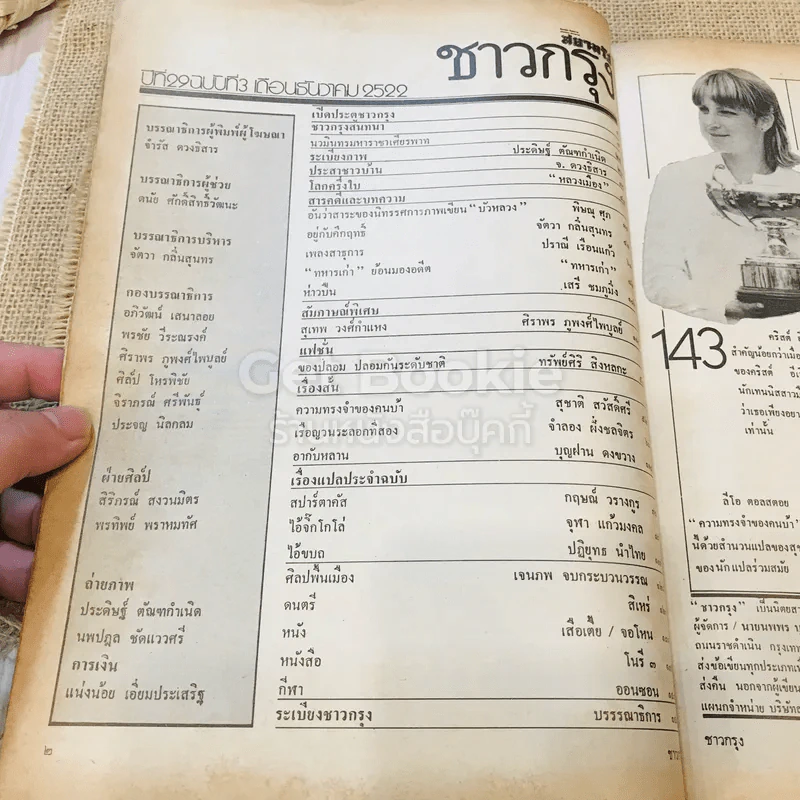 สยามรัฐ
ชาวกรุง
ปีที่ 29 ฉบับที่ 3 เดือนธันวาคม 2522
บรรณาธิการผู้พิมพ์ผู้โฆษณา
จำรัส ดวงธิสาร
บรรณาธิการผู้ช่วย
ดนัย ศักดิ์สิทธิ์วัฒนะ
บรรณาธิการบริหาร
จัตวา กลิ่นสุนทร
กองบรรณาธิการ
อภิวัฒน์ เสนาลอย
พรชัย วีระณรงค์
ศิราพร ภูพงศ์ไพบูลย์
ศิลป์ โหรพิชัย
จิราภรณ์ ศรีพันธุ์
ประจญ นิลกลม
ฝ่ายศิลป์
สิริภรณ์ สงวนมิตร
พรทิพย์ พราหมทัศ
ถ่ายภาพ
ประดิษฐ์ ตัณฑกำเนิด
นพปฎล ชัดแววศรี
การเงิน
แน่งน้อย เอี่ยมประเสริฐ
เปิดประตูชาวกรุง
ชาวกรุงสนทนา
นวมินทรมหาราชาเศียรพาท
ระเบียงภาพ ประดิษฐ์ ตัณฑกำเนิด
ประสาชาวบ้าน จ. ดวงธิสาร
โลกครึ่งใบ "หลวงเมือง"
สารคดีและบทความ
อันว่าสาระของนิทรรศการภาพเขียน "บัวหลวง" พิษณุ ศุภ
อยู่กับคึกฤทธิ์ จัตวา กลิ่นสุนทร
เพลงสาธุการ ปราณี เรือนแก้ว
"ทหารเก่า" ย้อนมองอดีต "ทหารเก่า"
ห่าวปืน เสรี ชมภูมิ่ง
สัมภาษณ์พิเศษ
สุเทพ วงศ์กำแหง ศิราพร ภูพงศ์ไพบูลย์
แฟชั่น
ของปลอม ปลอมกันระดับชาติ ทรัพย์ศิริ สิงหลกะ
เรื่องสั้น
ความทรงจำของคนบ้า สุชาติ สวัสดิ์ศรี
เรือญวนระลอกที่สอง จำลอง ฝั่งชลจิตร
อากับหลาน บุญฝาน ดงขวาง
เรื่องแปลประจำฉบับ
สปาร์ตาคัส กฤษณ์ วรางกูร
ไอ้จิ๊กโกโล่ จุฬา แก้วมงคล
ไอ้ขบถ ปฏิยุทธ นำไทย
ศิลปพื้นเมือง เจนภพ จบกระบวนวรรณ
ดนตรี สิเหร่
หนัง เสือเตี้ย / จอโหน
หนังสือ โนรี ๓
กีฬา ออนซอน
ระเบียงชาวกรุง บรรรณาธิการ
๒
143
คริสต์
สำคัญน้อยกว่าเมื่อ
ของคริสต์
นักเทนนิสสาว
ว่าเธอเพียงอยา
เท่านั้น
ลีโอ ตอลสตอย
"ความทรงจำของคนบ้า"
นี้ด้วยสำนวนแปลของสุช
ของนักแปลร่วมสมัย
"ชาวกรุง" เป็นนิตยสา
ผู้จัดการ / นายนพพร
ถนนราชดำเนิน กรุงเทพ
ส่งข้อเขียนทุกประเภทเ
ส่งคืน นอกจากผู้เขียน
แผนกจำหน่าย บริษัท
ชาวกรุง
Get Bookie
ร้านหนังสือบุ๊คกี้